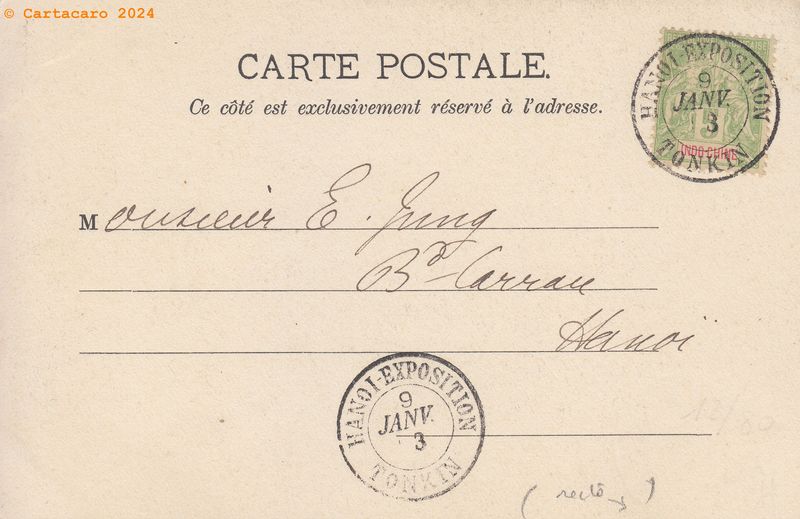 © Cartacaro 2024
CARTE POSTALE.
Ce côté est exclusivement réservé à l'adresse.
HANOI-EXPOSITION
9
JANV.
3
TONKIN
15
INDO-CHINE
Monsieur E. Jung
Bd Carrau
Hanoi
HANOI-EXPOSITION
9
JANV.
3
TONKIN
(recto)